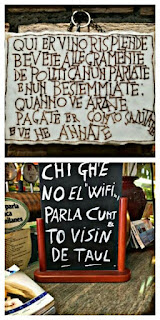 QUI ER VINO RISPLENDE
BEVETE ALLEGRAMENTE
DE POLITICA NUN PARLATE
E NUN BESTEMMIATE:
QUANNO VE ARZATE
PAGATE ER CONTO SALUTATE
E VE NE ANNATE
CHI GHE
NO EL WIFI,
PARLA CUNT
TO VISIN
DE TAUL.